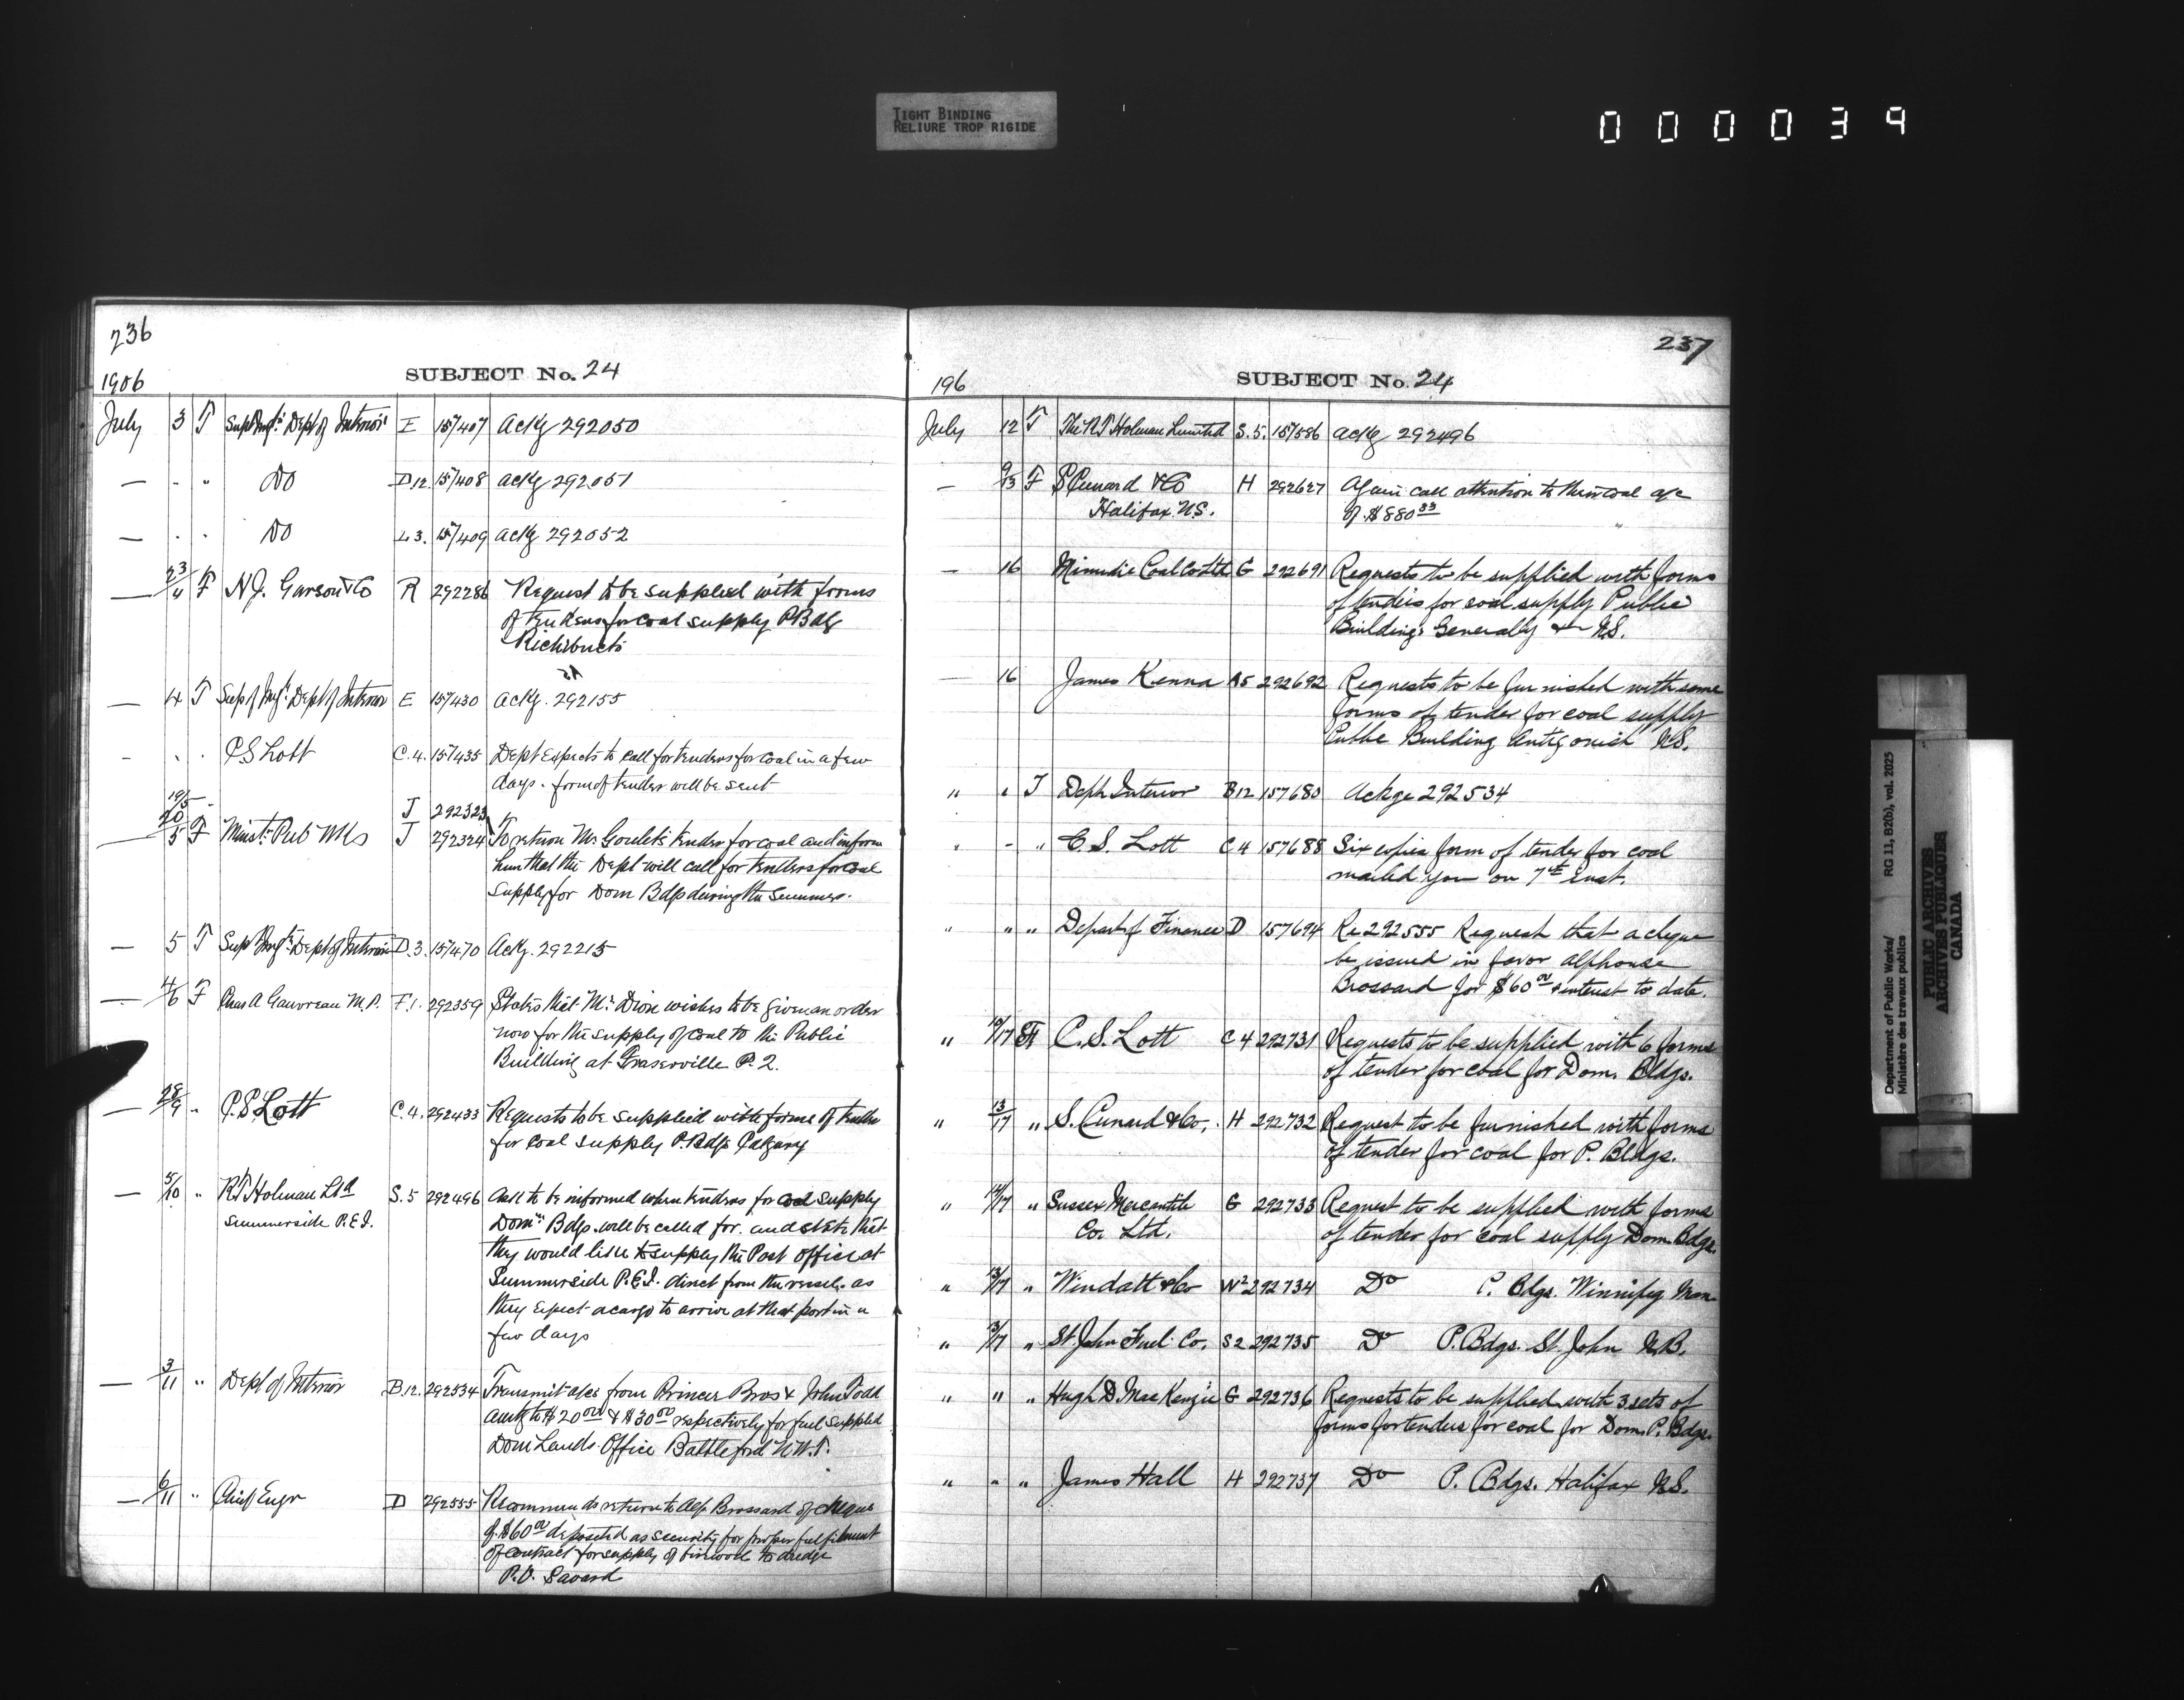 TIGHT BINDING
RELIURE TROP RIGIDE
000039
236
SUBJECT No. 24
1906
July 3 T Supt Imgn Dept of Interior I 157407 Ackg 292050
— " " Do D12. 157408 ackg 292051
— " " Do L3. 157409 ackg 292052
— 23/4 F N.J. Garson & Co R 292286 Request to be supplied with forms
of tenders for coal supply P Bdg
Richibucto
— 4 T Supt of Imgn Dept of Interior E 157430 Ackg. 292155
" " C S Lott C.4. 157435 Dept expects to call for tenders for coal in a few
days - form of tender will be sent
19/5 J 292323
— 20/5 F Minstr Pub Wks J 292324 To return Mr Goulet's tender for coal and inform
him that the Dept will call for tenders for coal
supply for Dom Bdgs during the Summer.
— 5 T Supt Imgn Dept of Interior D.3. 157470 Ackg. 292215
— 4/6 F Chas A Gauvreau M.P. F.1. 292359 States that Mr Dion wishes to be given an order
now for the supply of coal to the Public
Building at Fraserville P.Q.
— 28/9 " C.S. Lott C.4. 292433 Requests to be supplied with forms of tender
for coal supply P. Bdgs Calgary
— 5/10 " R T Holman Ltd S.5 292496 Ask to be informed when tenders for coal supply
Summerside P.E.I. Domn Bdgs. will be called for. and state that
they would like to supply the Post office at
Summerside P.E.I. direct from the vessels as
they expect a cargo to arrive at that port in a
few days
— 3/11 " Dept of Interior B.12. 292534 Transmit a/cs from Prince Bros & John Todd
amtg to $20.00 & $30.00 respectively for fuel supplied
Dom Lands Office Battleford N.W.T.
— 6/11 " Chief Engr D 292555 Recommends return to Alp. Brossard of cheque
of $60.00 deposited as security for proper fulfilment
of contract for supply of firewood to dredge
P.V. Savard
237
SUBJECT No. 24
196
July 12 T The R T Holman Limited S.5. 157586 ackg 292496
— 9/13 F S Cunard & Co H 292627 Again call attention to their coal a/c
Halifax N.S. of $880.33
— 16 Minudie Coal Co Ltd G 292691 Requests to be supplied with forms
of tenders for coal supply Public
Buildings Generally in N.S.
— 16 James Kenna A5 292692 Requests to be furnished with some
forms of tender for coal supply
Public Building Antigonish N.S.
" " T Dept Interior B12 157680 Ackge 292534
" " " C. S. Lott C4 157688 Six copies form of tender for coal
mailed you on 7th inst.
" " " Depart of Finance D 157694 Re 292555 Request that a cheque
be issued in favor Alphonse
Brossard for $60.00 & interest to date.
" 10/17 F C.S. Lott C4 292731 Requests to be supplied with 6 forms
of tender for coal for Dom. Bldgs.
" 13/17 " S. Cunard & Co, H 292732 Request to be furnished with forms
of tender for coal for P. Bldgs.
" 14/17 " Sussex Mercantile G 292733 Request to be supplied with forms
Co. Ltd. of tender for coal supply Dom. Bdgs.
" 13/17 " Windatt & Co W2 292734 Do P. Bdgs. Winnipeg Man
" 3/17 " St. John Fuel Co, S2 292735 Do P. Bdgs. St. John N.B.
" " " Hugh D. MacKenzie G 292736 Requests to be supplied with 3 sets of
forms for tenders for coal for Dom. P. Bdgs.
" " " James Hall H 292737 Do P. Bdgs. Halifax N.S.
Department of Public Works/ RG 11, B2(b), vol. 2025
Ministère des travaux publics
PUBLIC ARCHIVES
ARCHIVES PUBLIQUES
CANADA